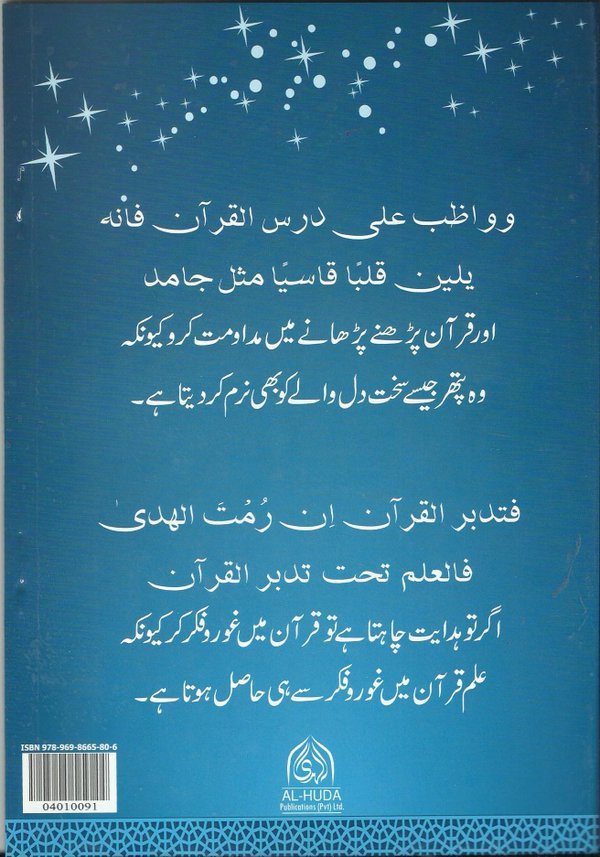 وواظب على درس القرآن فانه
يلين قلبًا قاسيًا مثل جامد
اور قرآن پڑھنے پڑھانے میں مداومت کرو کیونکہ
وہ پتھر جیسے سخت دل والے کو بھی نرم کر دیتا ہے۔
فتدبر القرآن اِن رُمْتَ الهدىٰ
فالعلم تحت تدبر القرآن
اگر تو ہدایت چاہتا ہے تو قرآن میں غور و فکر کر کیونکہ
علم قرآن میں غور و فکر سے ہی حاصل ہوتا ہے۔
ISBN 978-969-8665-80-6
04010091
AL-HUDA
Publications (Pvt) Ltd.